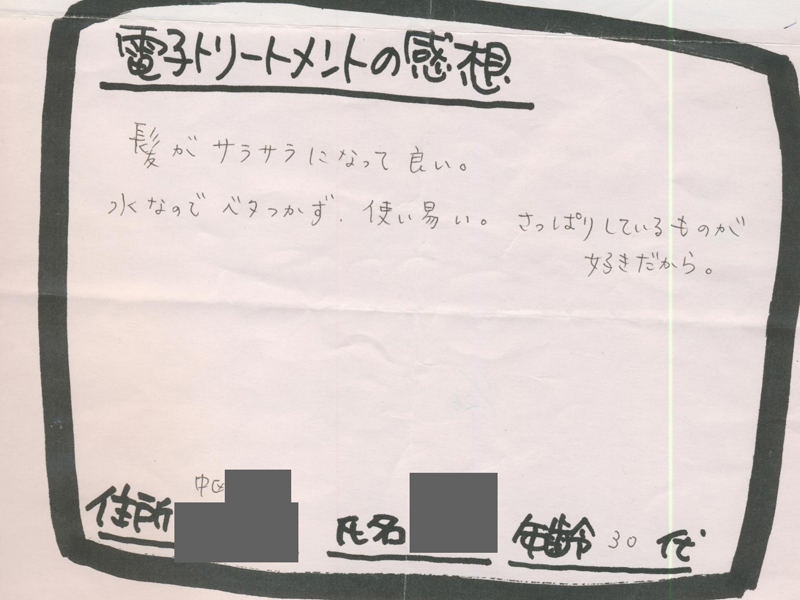 電子トリートメントの感想
髪がサラサラになって良い。
水なのでベタつかず、使い易い。さっぱりしているものが
好きだから。
中区
住所
氏名
年齢 30代